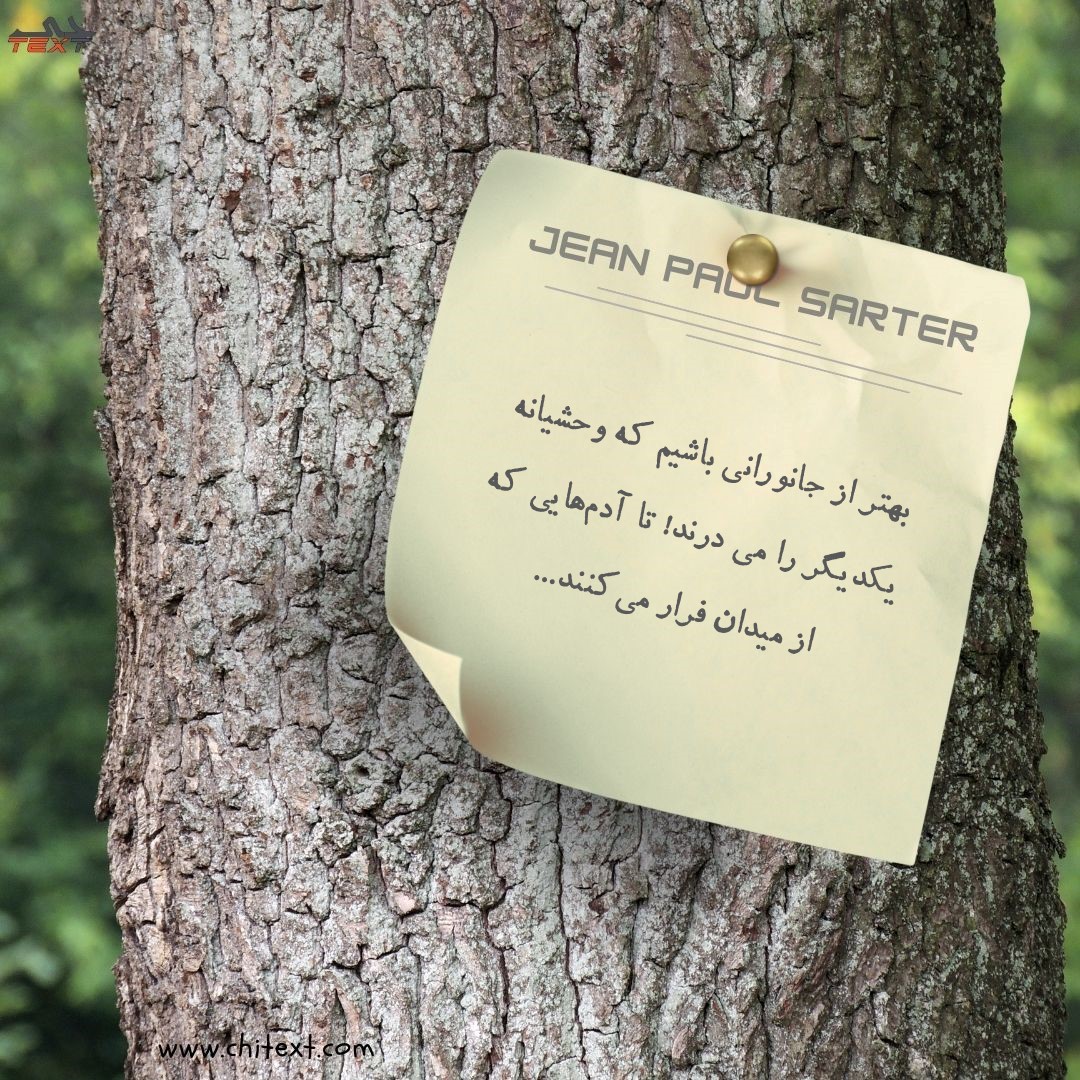 چی
TEXT
JEAN PAUL SARTER
بهتر از جانورانی باشیم که وحشیانه
یکدیگر را می درند! تا آدم‌هایی که
از میدان فرار می‌کنند...
www.chitext.com